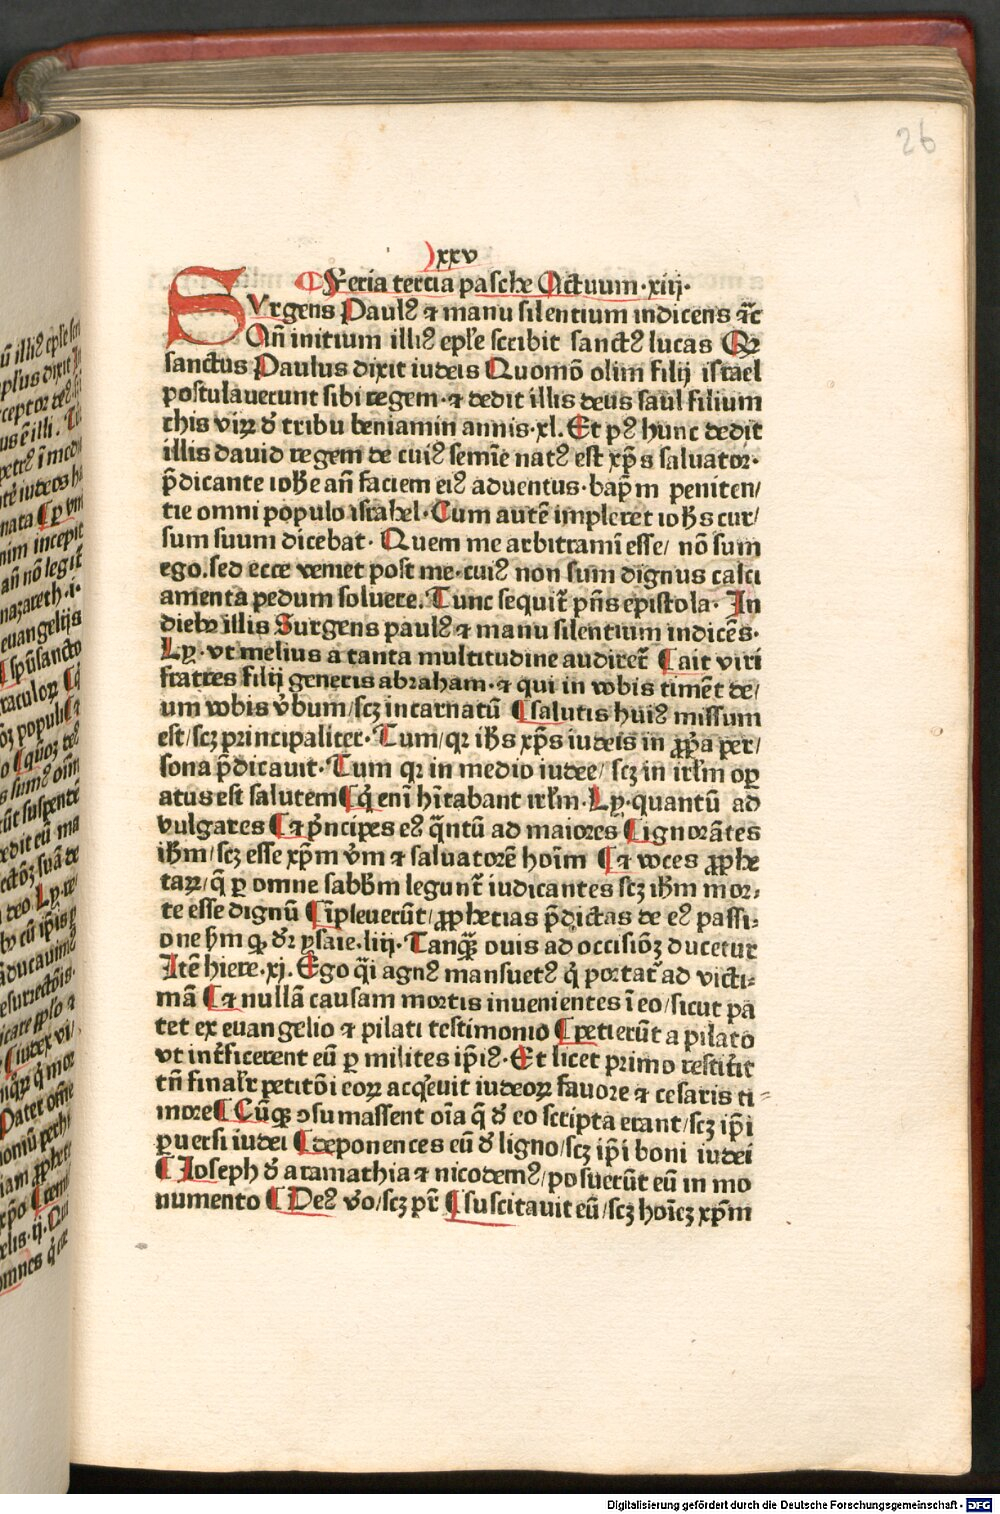 26
xxv
¶ Feria tercia pasche Actuum·xiij·
SVrgens Paul⁹ ⁊ manu silentium indicens ⁊c̃
Qñ initium illi⁹ ep̃le scribit sanct⁹ lucas Qꝛ
sanctus Paulus dixit iudeis Quomõ olim filij israel
postulauerunt sibi regem·⁊ dedit illis deus saul filium
this viꝝ ð tribu beniamin annis·xl. Et p⁹ hunc dedit
illis dauid regem de cui⁹ semĩe nat⁹ est xp̃s saluator·
p̃dicante ioħe añ faciem ei⁹ aduentus·bap̃m peniten/
tie omni populo israhel· Cum autẽ impleret ioħs cur/
sum suum dicebat· Quem me arbitramĩ esse/ nõ sum
ego.sed ecce veniet post me·cui⁹ non sum dignus calci
amenta pedum soluere. Tunc sequit̃ pñs epistola· In
dieb⁹ illis Surgens paul⁹ ⁊ manu silentium indicẽs·
Ly·vt melius a tanta multitudine audiret̃ ¶ait viri
fratres filij generis abraham·⁊ qui in vobis timẽt de/
um vobis v̾bum/scꝫ incarnatũ ¶salutis hui⁹ missum
est/scꝫ principaliter· Tum/qꝛ iħs xp̃s iudeis in ꝓp̃a per/
sona p̃dicauit· Tum qꝛ in medio iudee/ scꝫ in irl̃m oꝑ
atus est salutem ¶q̇ eni h̃itabant irl̃m·Ly·quantũ ad
vulgares ¶⁊ p̃ncipes e⁹ q̃ntũ ad maiores ¶ignorãtes
iħm/scꝫ esse xp̃m v̾m ⁊ saluatorẽ hoĩm ¶⁊ voces ꝓphe
taꝝ/q̃ ꝑ omne sabb̃m legunt̃ iudicantes scꝫ iħm mor⸗
te esse dignũ ¶ĩpleuerũt/ꝓphetias p̃dictas de e⁹ passi⸗
one ħm ꝙ ðꝛ ysaie·liij· Tanꝗ̃ ouis ad occisiõꝫ ducetur
Itẽ hiere·xj. Ego q̃i agn⁹ mansuet⁹ q̇ portat̃ ad victi⸗
mã ¶⁊ nullã causam mortis inuenientes ĩ eo/sicut pa
tet ex euangelio ⁊ pilati testimonio ¶petierũt a pilato
vt int̾ficerent eũ ꝑ milites ip̃i⁹· Et licet primo restit̾it
tñ final̃r petitõi eoꝝ acq̇euit iudeoꝝ fauore ⁊ cesaris ti⸗
more ¶Cũꝗ ꝯsumassent oĩa q̃ ð eo scripta erant/scꝫ ip̃i
ꝑuersi iudei ¶deponences eũ ð ligno/scꝫ ip̃i boni iudei
¶Ioseph ð aramathia ⁊ nicodem⁹/posuerũt eũ in mo
numento ¶De⁹ v̾o/scꝫ pr̃ ¶suscitauit eũ/scꝫ hoĩeꝫ xp̃m
Digitalisierung gefördert durch die Deutsche Forschungsgemeinschaft - DFG